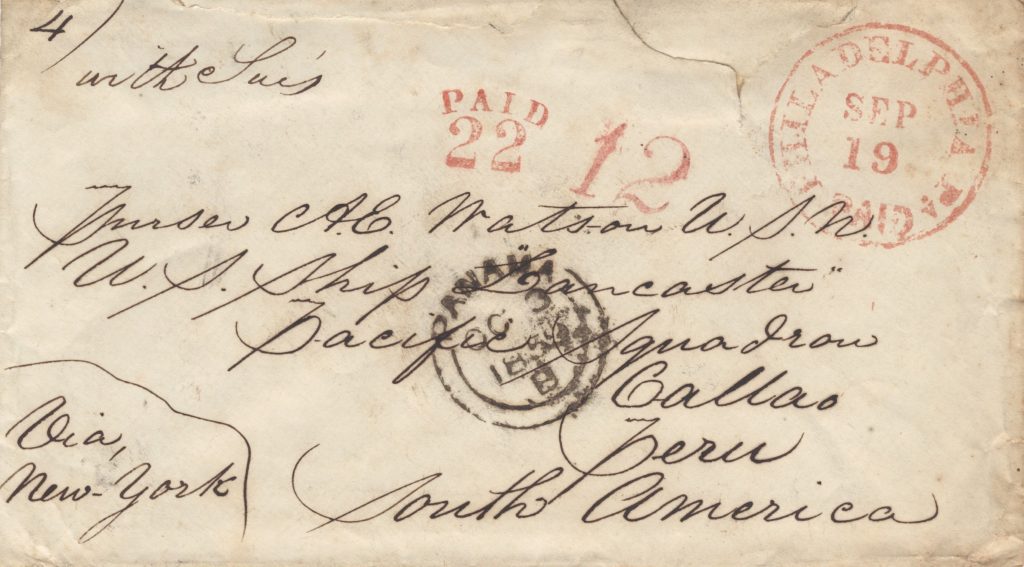 4
with Sue's
PAID
22
12
PHILADELPHIA PA
SEP
19
PAID
Purser A.E. Watson U.S.N.
U.S. Ship "Lancaster"
Pacific Squadron
Callao
Peru
South America
PANAMA
OC
Via,
New-York